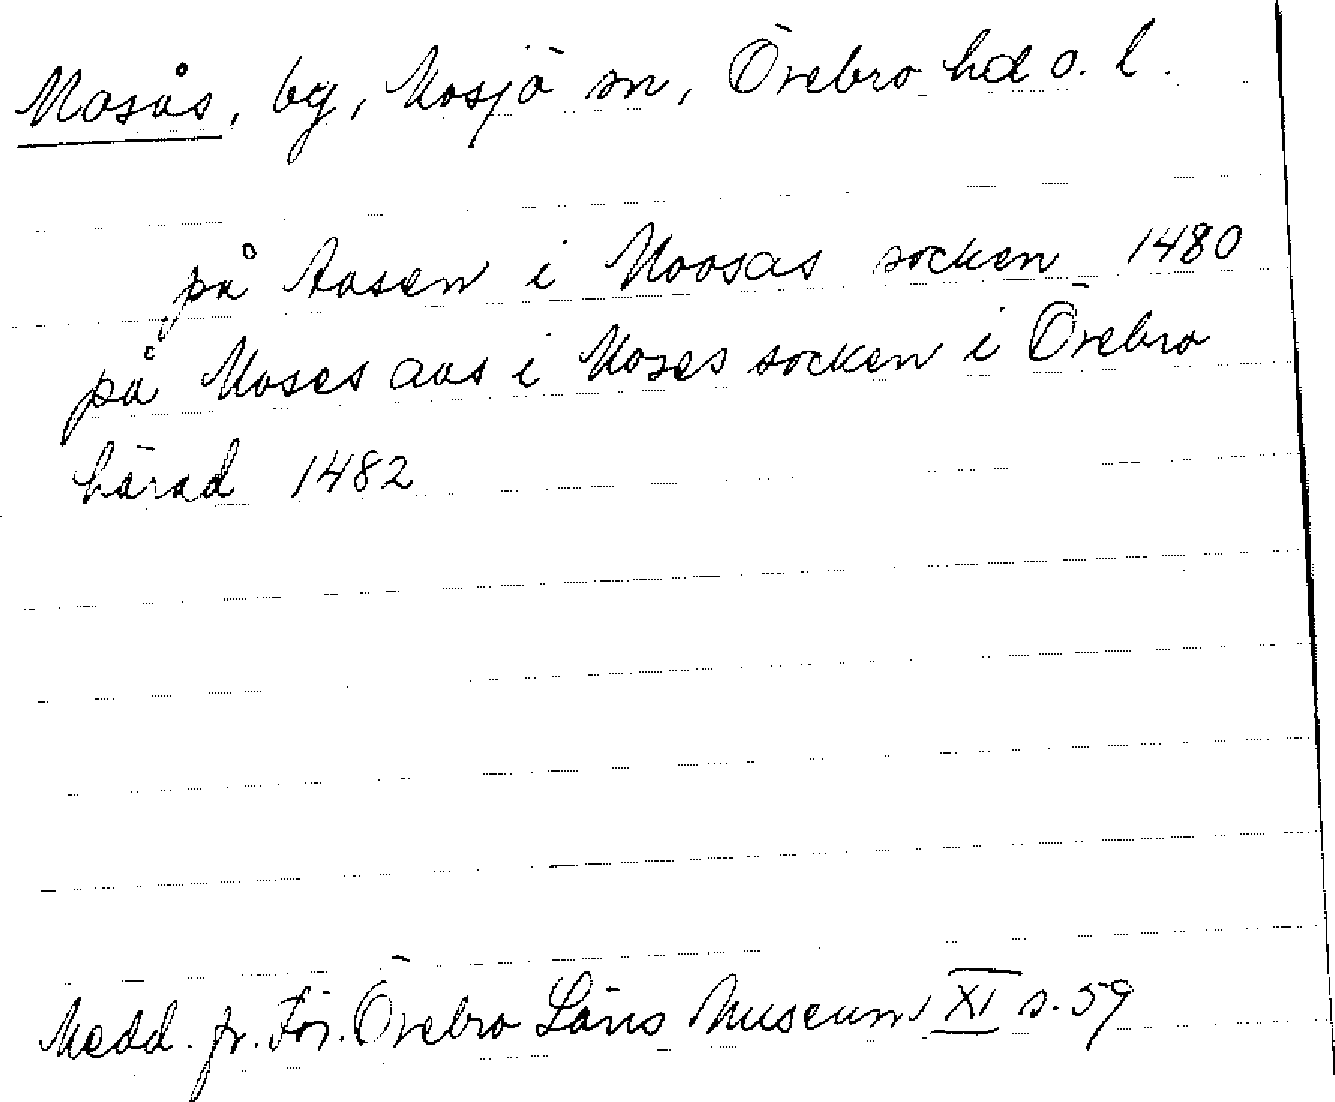 Mosås, by, Mosjö sn, Örebro hd o. l.
på Aasen i Moosas socken 1480
på Moses aas i Moses socken i Örebro
härad 1482
Medd. fr. För. Örebro Läns Museum XI s. 59